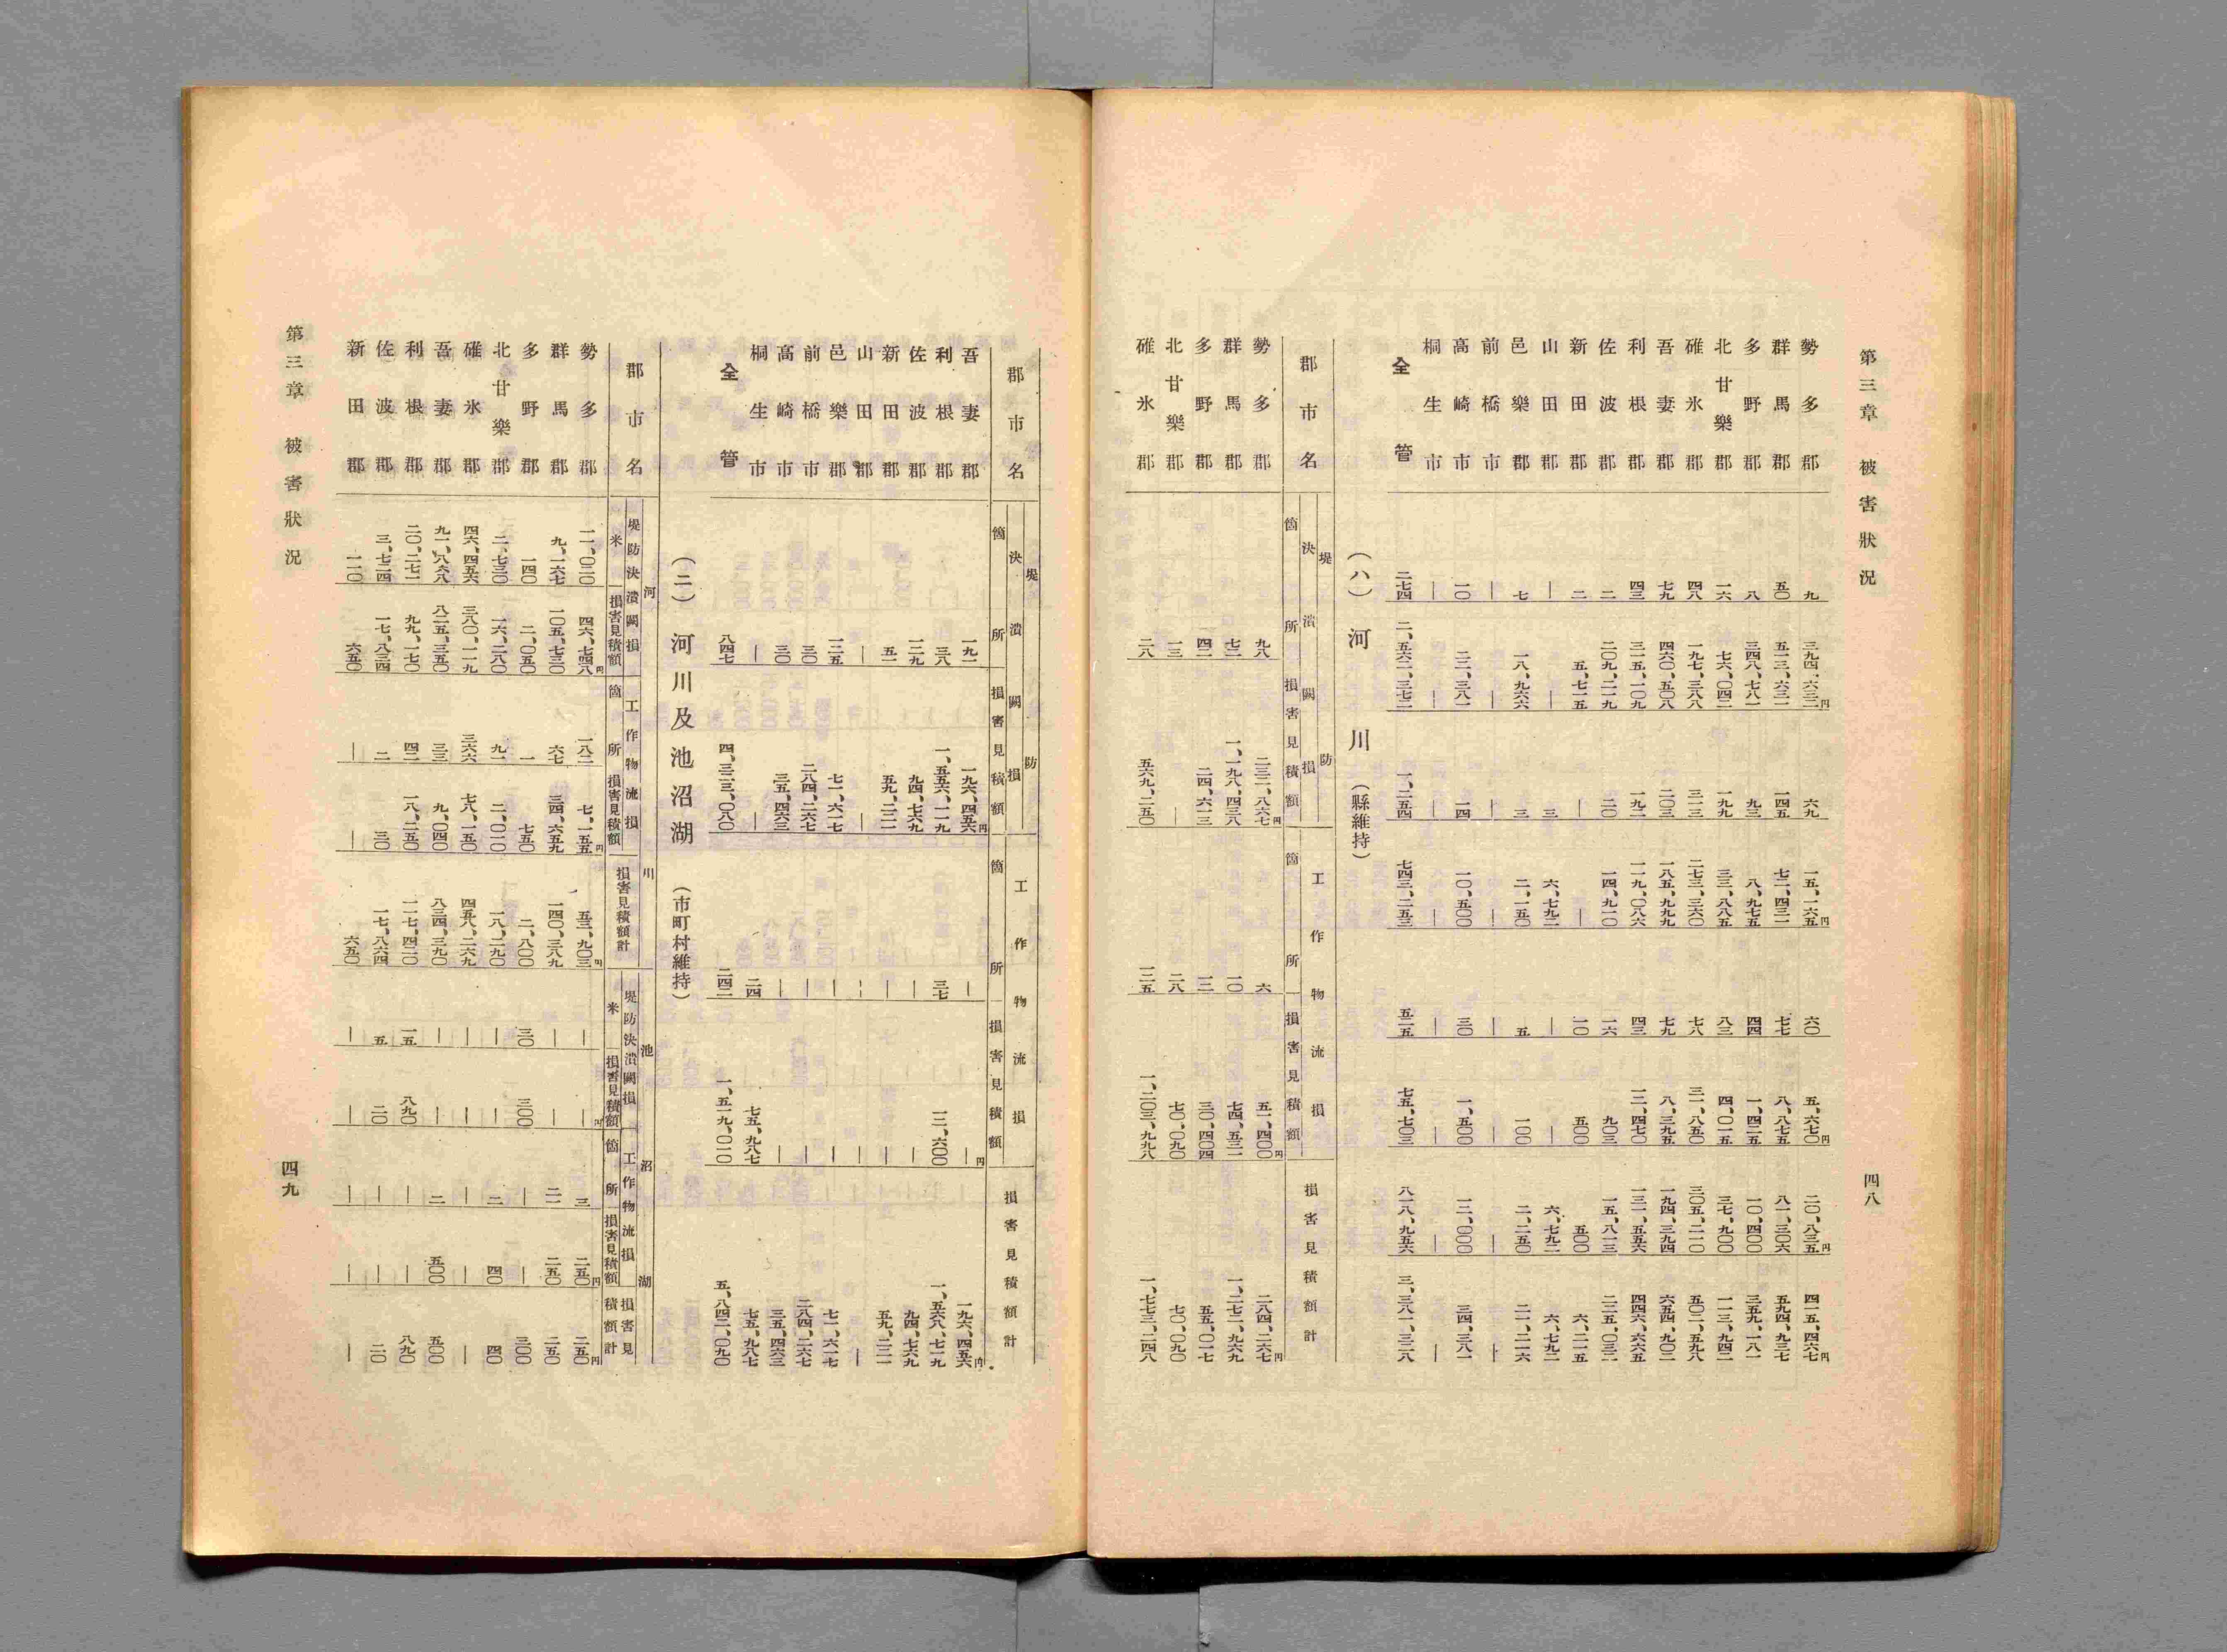 第三章 被害狀況 四八
勢多郡 九 三九四、六三二円 六九 一五、一六五円 六〇 五、六七〇円 二〇、八三五円 四一五、四六七円
群馬郡 五〇 五一三、六三一 一四五 七二、四三一 七七 八、八七五 八一、三〇六 五九四、九三七
多野郡 八 三四八、七八一 九三 八、九七五 四四 一、四二五 一〇、四〇〇 三五九、一八一
北甘樂郡 一六 七六、〇四二 一九九 三三、八八五 八三 四、〇一五 三七、九〇〇 一一三、九四二
碓氷郡 四八 一九七、三八八 三一三 二七三、三六〇 七八 三一、八五〇 三〇五、二一〇 五〇二、五九八
吾妻郡 七九 四六〇、五〇八 二〇三 一八五、九九九 七九 八、三九五 一九四、三九四 六五四、九〇二
利根郡 四三 三一五、一〇九 一九二 一一九、〇八六 四三 一二、四七〇 一三一、五五六 四四六、六六五
佐波郡 二 二〇九、二一九 二〇 一四、九一〇 一六 九〇三 一五、八一三 二二五、〇三二
新田郡 二 五、七一五 — — 一〇 五〇〇 五〇〇 六、二一五
山田郡 — — 三 六、七九二 — — 六、七九二 六、七九二
邑樂郡 七 一八、九六六 三 二、一五〇 五 一〇〇 二、二五〇 二一、二一六
前橋市 — — — — — — — —
高崎市 一〇 二二、三八一 一四 一〇、五〇〇 三〇 一、五〇〇 一二、〇〇〇 三四、三八一
桐生市 — — — — — — — —
全管 二七四 二、五六二、三七二 一、二五四 七四三、二五三 五二五 七五、七〇三 八一八、九五六 三、三八一、三二八
（八）河川（縣維持）
堤防
郡市名 決潰闕損 工作物流損 損害見積額計
箇所 損害見積額 箇所 損害見積額
勢多郡 九八 二三二、八六七円 六 五一、四〇〇円 二八四、二六七円
群馬郡 七二 一、一九八、四三八 一〇 七四、五三一 一、二七二、九六九
多野郡 四二 二四、六一三 一二 三〇、四〇四 五五、〇一七
北甘樂郡 一三 — 二八 七〇、〇九〇 七〇、〇九〇
碓氷郡 二八 五六九、二五〇 一二五 一、二〇三、九九八 一、七七三、二四八
堤防
郡市名 決潰闕損 工作物流損 損害見積額計
箇所 損害見積額 箇所 損害見積額
吾妻郡 一九一 一九六、四五六円 — —円 一九六、四五六円
利根郡 三八 一、五五六、一一九 三七 一二、六〇〇 一、五六八、七一九
佐波郡 一二九 九四、七六九 — — 九四、七六九
新田郡 五一 五九、二二一 — — 五九、二二一
山田郡 — — — — —
邑樂郡 一二五 七一、六一七 — — 七一、六一七
前橋市 三〇 二八四、二六七 — — 二八四、二六七
高崎市 三〇 三五、四六三 — — 三五、四六三
桐生市 — — 二四 七五、九八七 七五、九八七
全管 八四七 四、三二三、〇八〇 二四二 一、五一九、〇一〇 五、八四二、〇九〇
（二）河川及池沼湖（市町村維持）
河川 池沼湖
郡市名 堤防決潰闕損 工作物流損 損害見積額計 堤防決潰闕損 工作物流損 損害見積額計
米 損害見積額 箇所 損害見積額 米 損害見積額 箇所 損害見積額
勢多郡 一一、〇二〇 四六、七四八円 一八二 七、一五五円 五三、九〇三円 — —円 三 二五〇円 二五〇円
群馬郡 九、一六七 一〇五、七三〇 六七 三四、六五九 一四〇、三八九 — — 二一 二五〇 二五〇
多野郡 一四〇 二、〇五〇 一 七五〇 二、八〇〇 三〇 三〇〇 — — 三〇〇
北甘樂郡 二、七三〇 一六、二八〇 九一 二、〇一〇 一八、二九〇 — — 二 四〇 四〇
碓氷郡 四六、四五六 三八〇、一一九 三六六 七八、一五〇 四五八、二六九 — — — — —
吾妻郡 九一、八六八 八二五、三五〇 三三 九、〇四〇 八三四、三九〇 — — 二 五〇〇 五〇〇
利根郡 二〇、二七一 九九、一七〇 四二 一八、二五〇 一一七、四二〇 一五 八九〇 — — 八九〇
佐波郡 三、七二四 一七、八三四 二 三〇 一七、八六四 五 二〇 — — 二〇
新田郡 一一〇 六五〇 — — 六五〇 — — — — —
第三章 被害狀況 四九